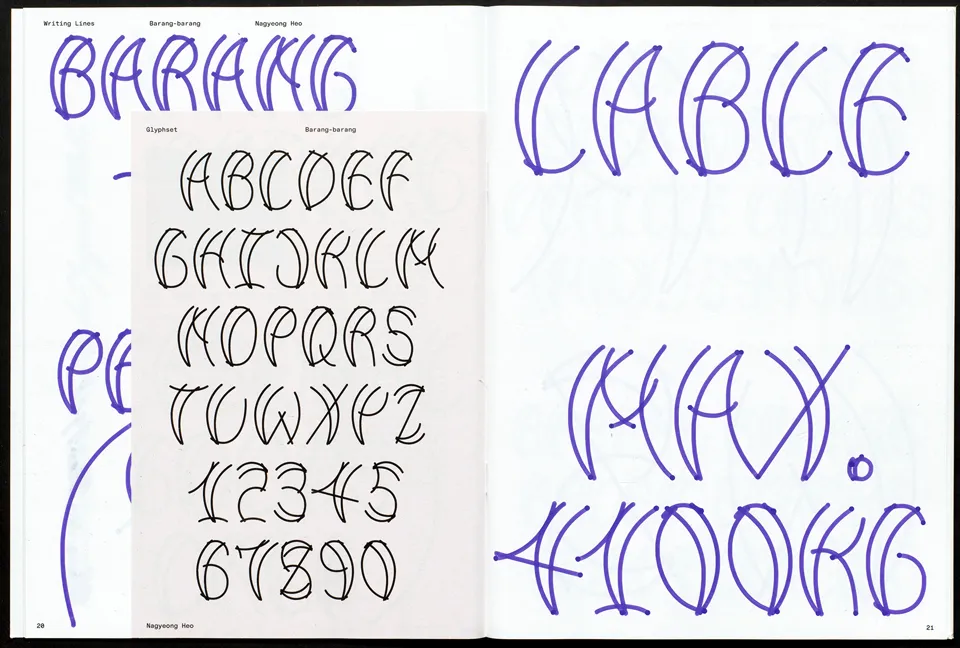 Writing Lines Barang-barang Nagyeong Heo
BARANG
-
Glyphset Barang-barang
ABCDEF
GHIJKLM
NOPQRS
TUWXYZ
12345
67890
20 Nagyeong Heo
LABLE
MAX.
4100KG
21